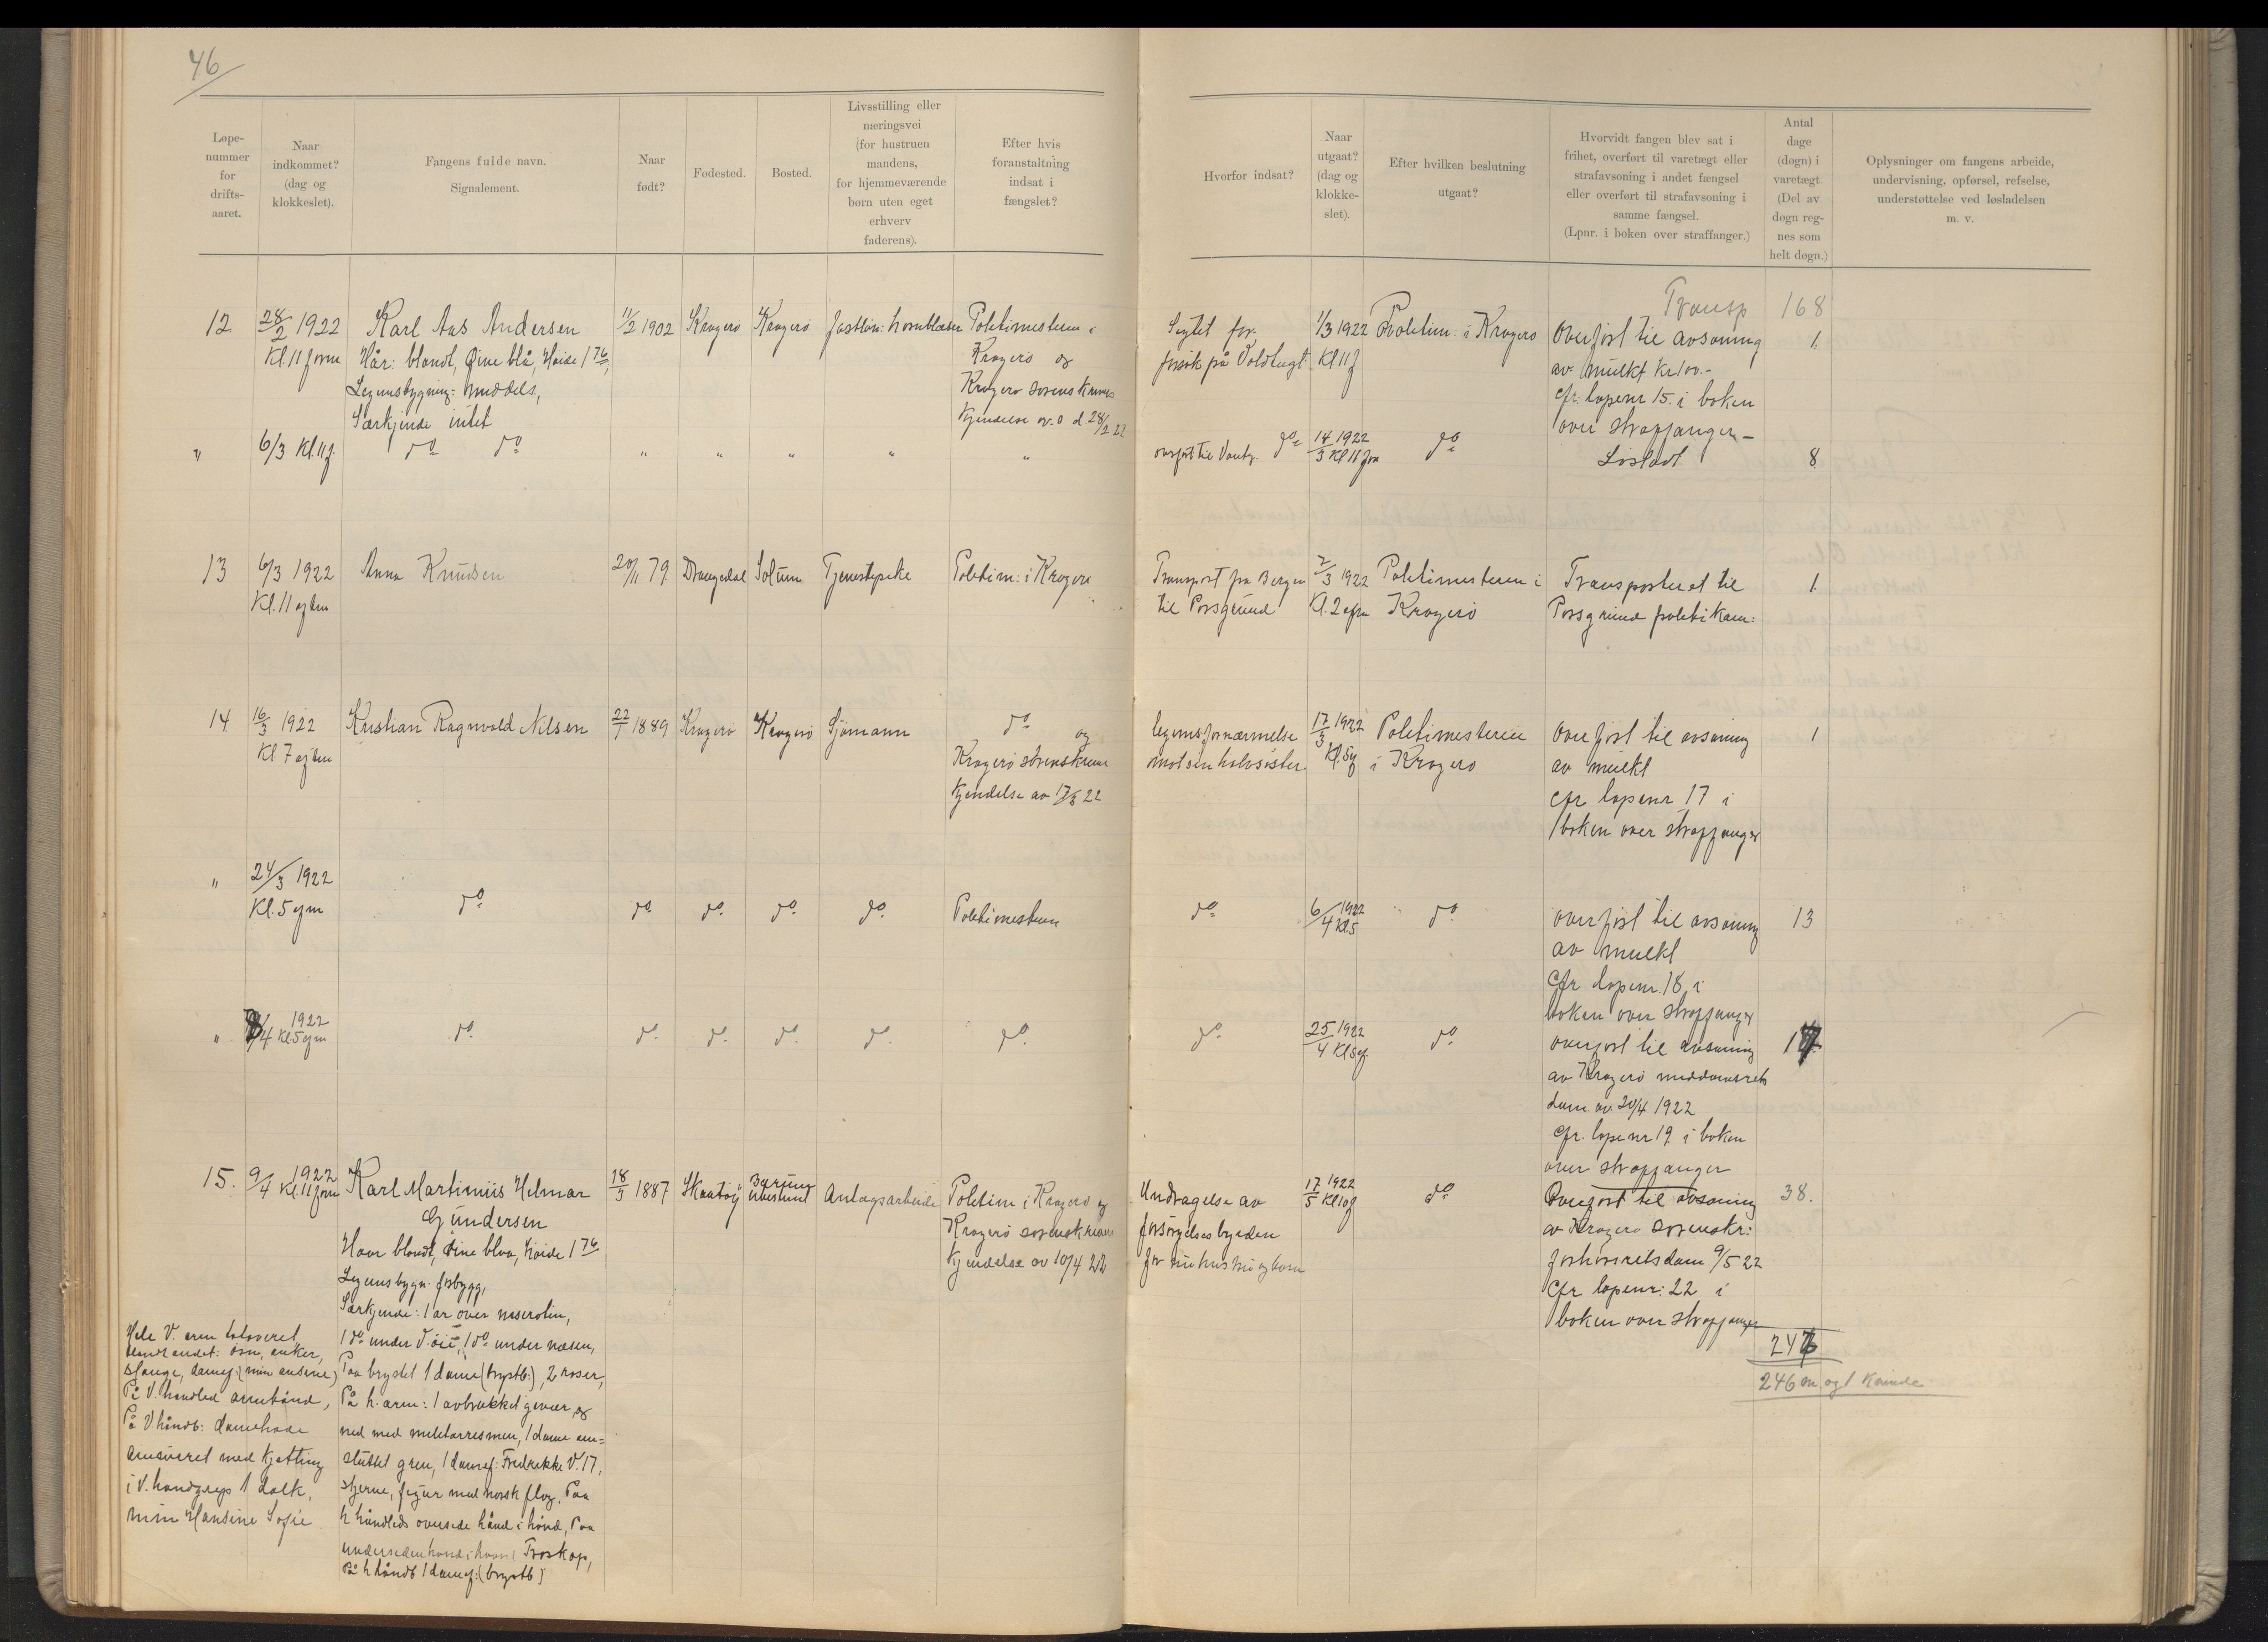 46
Løpe-
nummer
for
drifts-
aaret.
Naar
indkommet?
(dag og
klokkeslet).
Fangens fulde navn.
Signalement.
Naar
født?
Fødested.
Bosted.
Livsstilling eller
næringsvei
(for hustruen
mandens,
for hjemmeværende
børn uten eget
erhverv
faderens).
Efter hvis
foranstaltning
indsat i
fængslet?
Hvorfor indsat?
Naar
utgaat?
(dag og
klokke-
slet).
Efter hvilken beslutning
utgaat?
Hvorvidt fangen blev sat i
frihet, overført til varetægt eller
strafavsoning i andet fængsel
eller overført til strafavsoning i
samme fængsel.
(Lpnr. i boken over straffanger.)
Antal
dage
(døgn) i
varetægt.
(Del av
døgn reg-
nes som
helt døgn.)
Oplysninger om fangens arbeide,
undervisning, opførsel, refselse,
understøttelse ved løsladelsen
m. v.
Transp 168
12.
28/2 1922
Kl. 11 form
Karl Aas Andersen
Hår: blondt, Øine blå, Høide 1 76,
Legemsbygning: middels,
Særkjende intet
11/2 1902
Kragerø
Kragerø
hornblæser
Politimesteren i
Kragerø og
Kragerø sorenskrivers
Kjendelse av d. 28/2 22
Sigtet for
forsøk på Voldtægt
1/3 1922
Kl 11 f
Politim: i Kragerø
Overført til avsoning
av mulkt Kr 100.-
cfr. løpenr 15. i boken
over straffanger –
1.
"
6/3 Kl. 11 f.
do do
"
"
"
"
"
do
14/3 1922
Kl 11 fm
do
Løsladt
8.
13
6/3 1922
Kl. 11 eftm
Anna Knudsen
20/11 79.
Drangedal
Solum
Tjenestepike
Politim: i Kragerø
Transport fra Bergen
til Porsgrund
7/3 1922
Kl. 2 efm
Politimesteren i
Kragerø
Transporteret til
Porsgrund politikam:
1.
14.
16/3 1922
Kl 7 eftm
Kristian Ragnvald Nilsen
22/7 1889
Kragerø
Kragerø
Sjømann
do og
Kragerø sorenskriver
Kjendelse av 17/3 22
legemsfornærmelse
mot sin halvsøster.
17/3 1922
Kl. 5 ef
Politimesteren
i Kragerø
overført til avsoning
av mulkt
cfr løpenr 17 i
boken over straffanger
1
"
24/3 1922
Kl. 5 efm
do
do
do.
do.
do.
Politimesteren
do
6/4 1922
Kl 5
do.
overført til avsoning
av mulkt
cfr løpenr. 18 i
boken over straffanger
13
"
/4 1922
Kl. 5 efm
do.
do.
do.
do.
do.
do.
do.
25/4 1922
Kl 5 ef.
do.
overført til avsoning
av Kragerø meddomsrets
dom av 20/4 1922
cfr. løpenr 19 i boken
over straffanger
15.
9/4 1922
Kl. 11 form
Karl Martinius Helmar
Gundersen
Haar blondt, Øine blaa, høide 1 76
Legemsbygn: førbygg,
Særkjende: 1 ar over næseroten,
1 do under V. øie, 1 do under næsen,
Paa brystet 1 dame (brystb:), 2 roser,
På h. arm: 1 avbrukket gevær, og
ned med militærresmen, 1 dame om-
sluttet gren, 1 damef: Fredrikke V. 17,
stjerne, figur med norsk flag. Paa
h håndleds overside hånd i hånd, Paa
undersiden hånd i haand Troskap,
På h håndb 1 damef: (brystb)
Hele V. arm tatoveret
blandt andet: ørn, anker,
slange, damef: (min
På V. håndled armbånd,
På V håndb: damehode
med kjetting
i V. håndgrep 1 dolk,
min Hansine Sofie
18/3 1887
Skaatøy
Bærum
Anlægsarbeide
Politim i Kragerø og
Kragerø sorenskriver
Kjendelse av 10/4 22
Undragelse av
forsørgelsesbyrden
for sin hustru og barn
17/5 1922
Kl 10 f
do
Overført til avsoning
av Kragerø sorenskr:
forhørsretsdom 9/5 22
cfr løpenr: 22 i
boken over straffanger
38.
246 m og 1 Kvinde